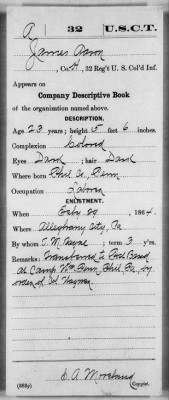 A | 32 | U.S.C.T.
James Aaron
, Co. H, 32 Reg't U. S. Col'd Inf.
Appears on
Company Descriptive Book
of the organization named above.
DESCRIPTION.
Age 23 years; height 5 feet 6 inches.
Complexion Colored
Eyes Dark; hair Dark
Where born Phil Co., Penn
Occupation Laborer
ENLISTMENT.
When Feby 29, 1864.
Where Alleghany City, Pa
By whom W. Payne; term 3 y'rs.
Remarks: Transferred to Post Band
at Camp Wm Penn, Phil Pa, by
order of Col Wagner
Copyist.